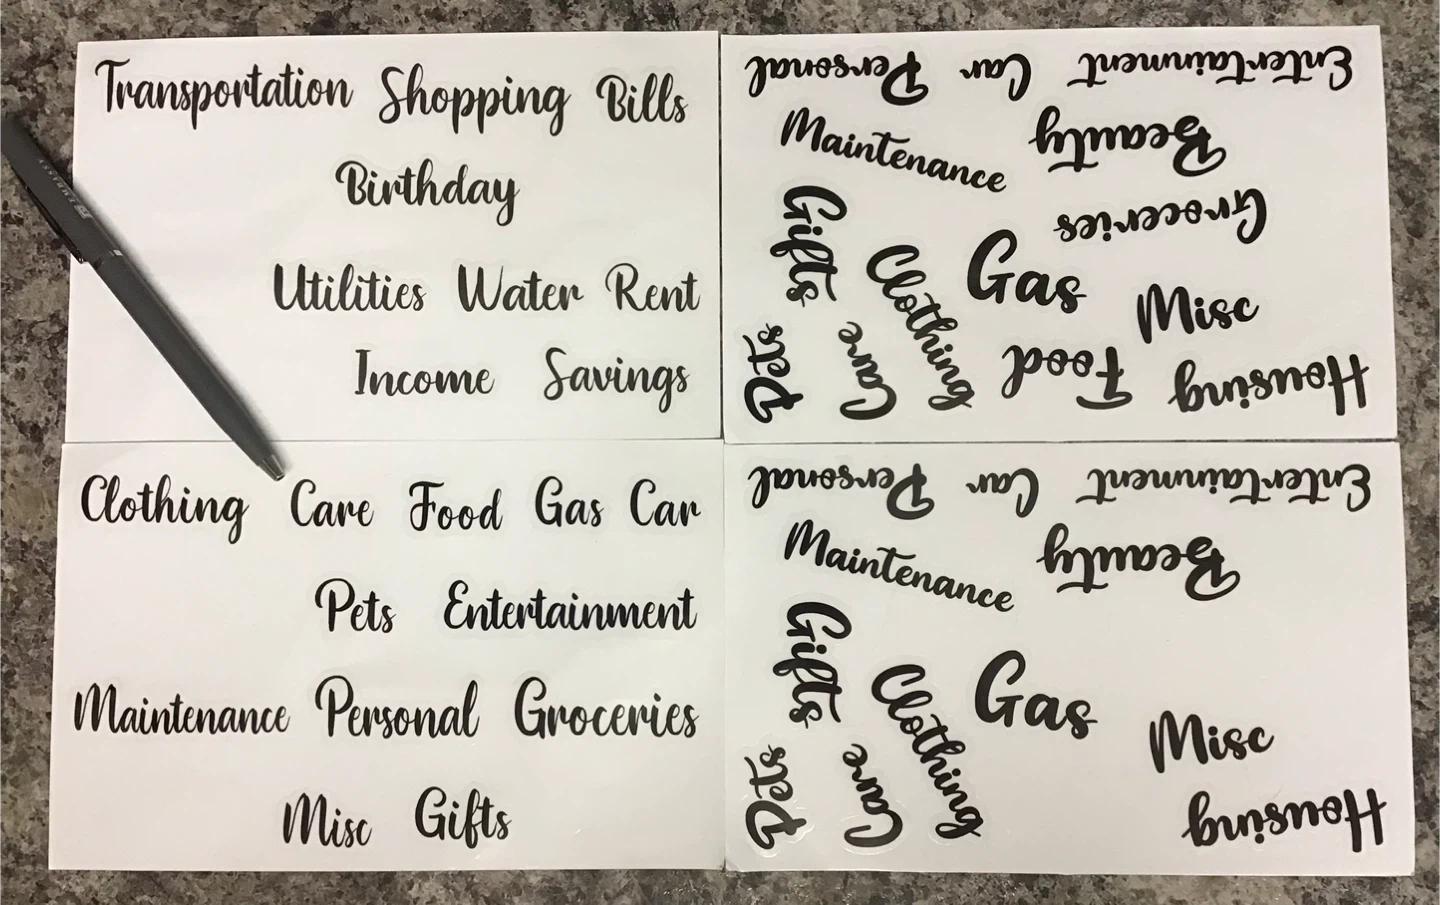 Transportation Shopping Bills
Birthday
Utilities Water Rent
Income Savings
Personal Car Entertainment
Maintenance
Beauty
Gifts
Groceries
Clothing
Gas
Misc
Pets
Care
Food
Housing
Clothing Care Food Gas Car
Pets Entertainment
Maintenance Personal Groceries
Misc Gifts
Personal Car Entertainment
Maintenance
Beauty
Gifts
Clothing
Gas
Misc
Pets
Care
Housing